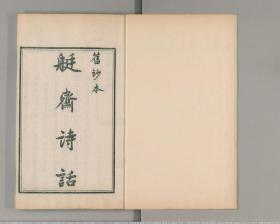 舊鈔本
艇齋诗話